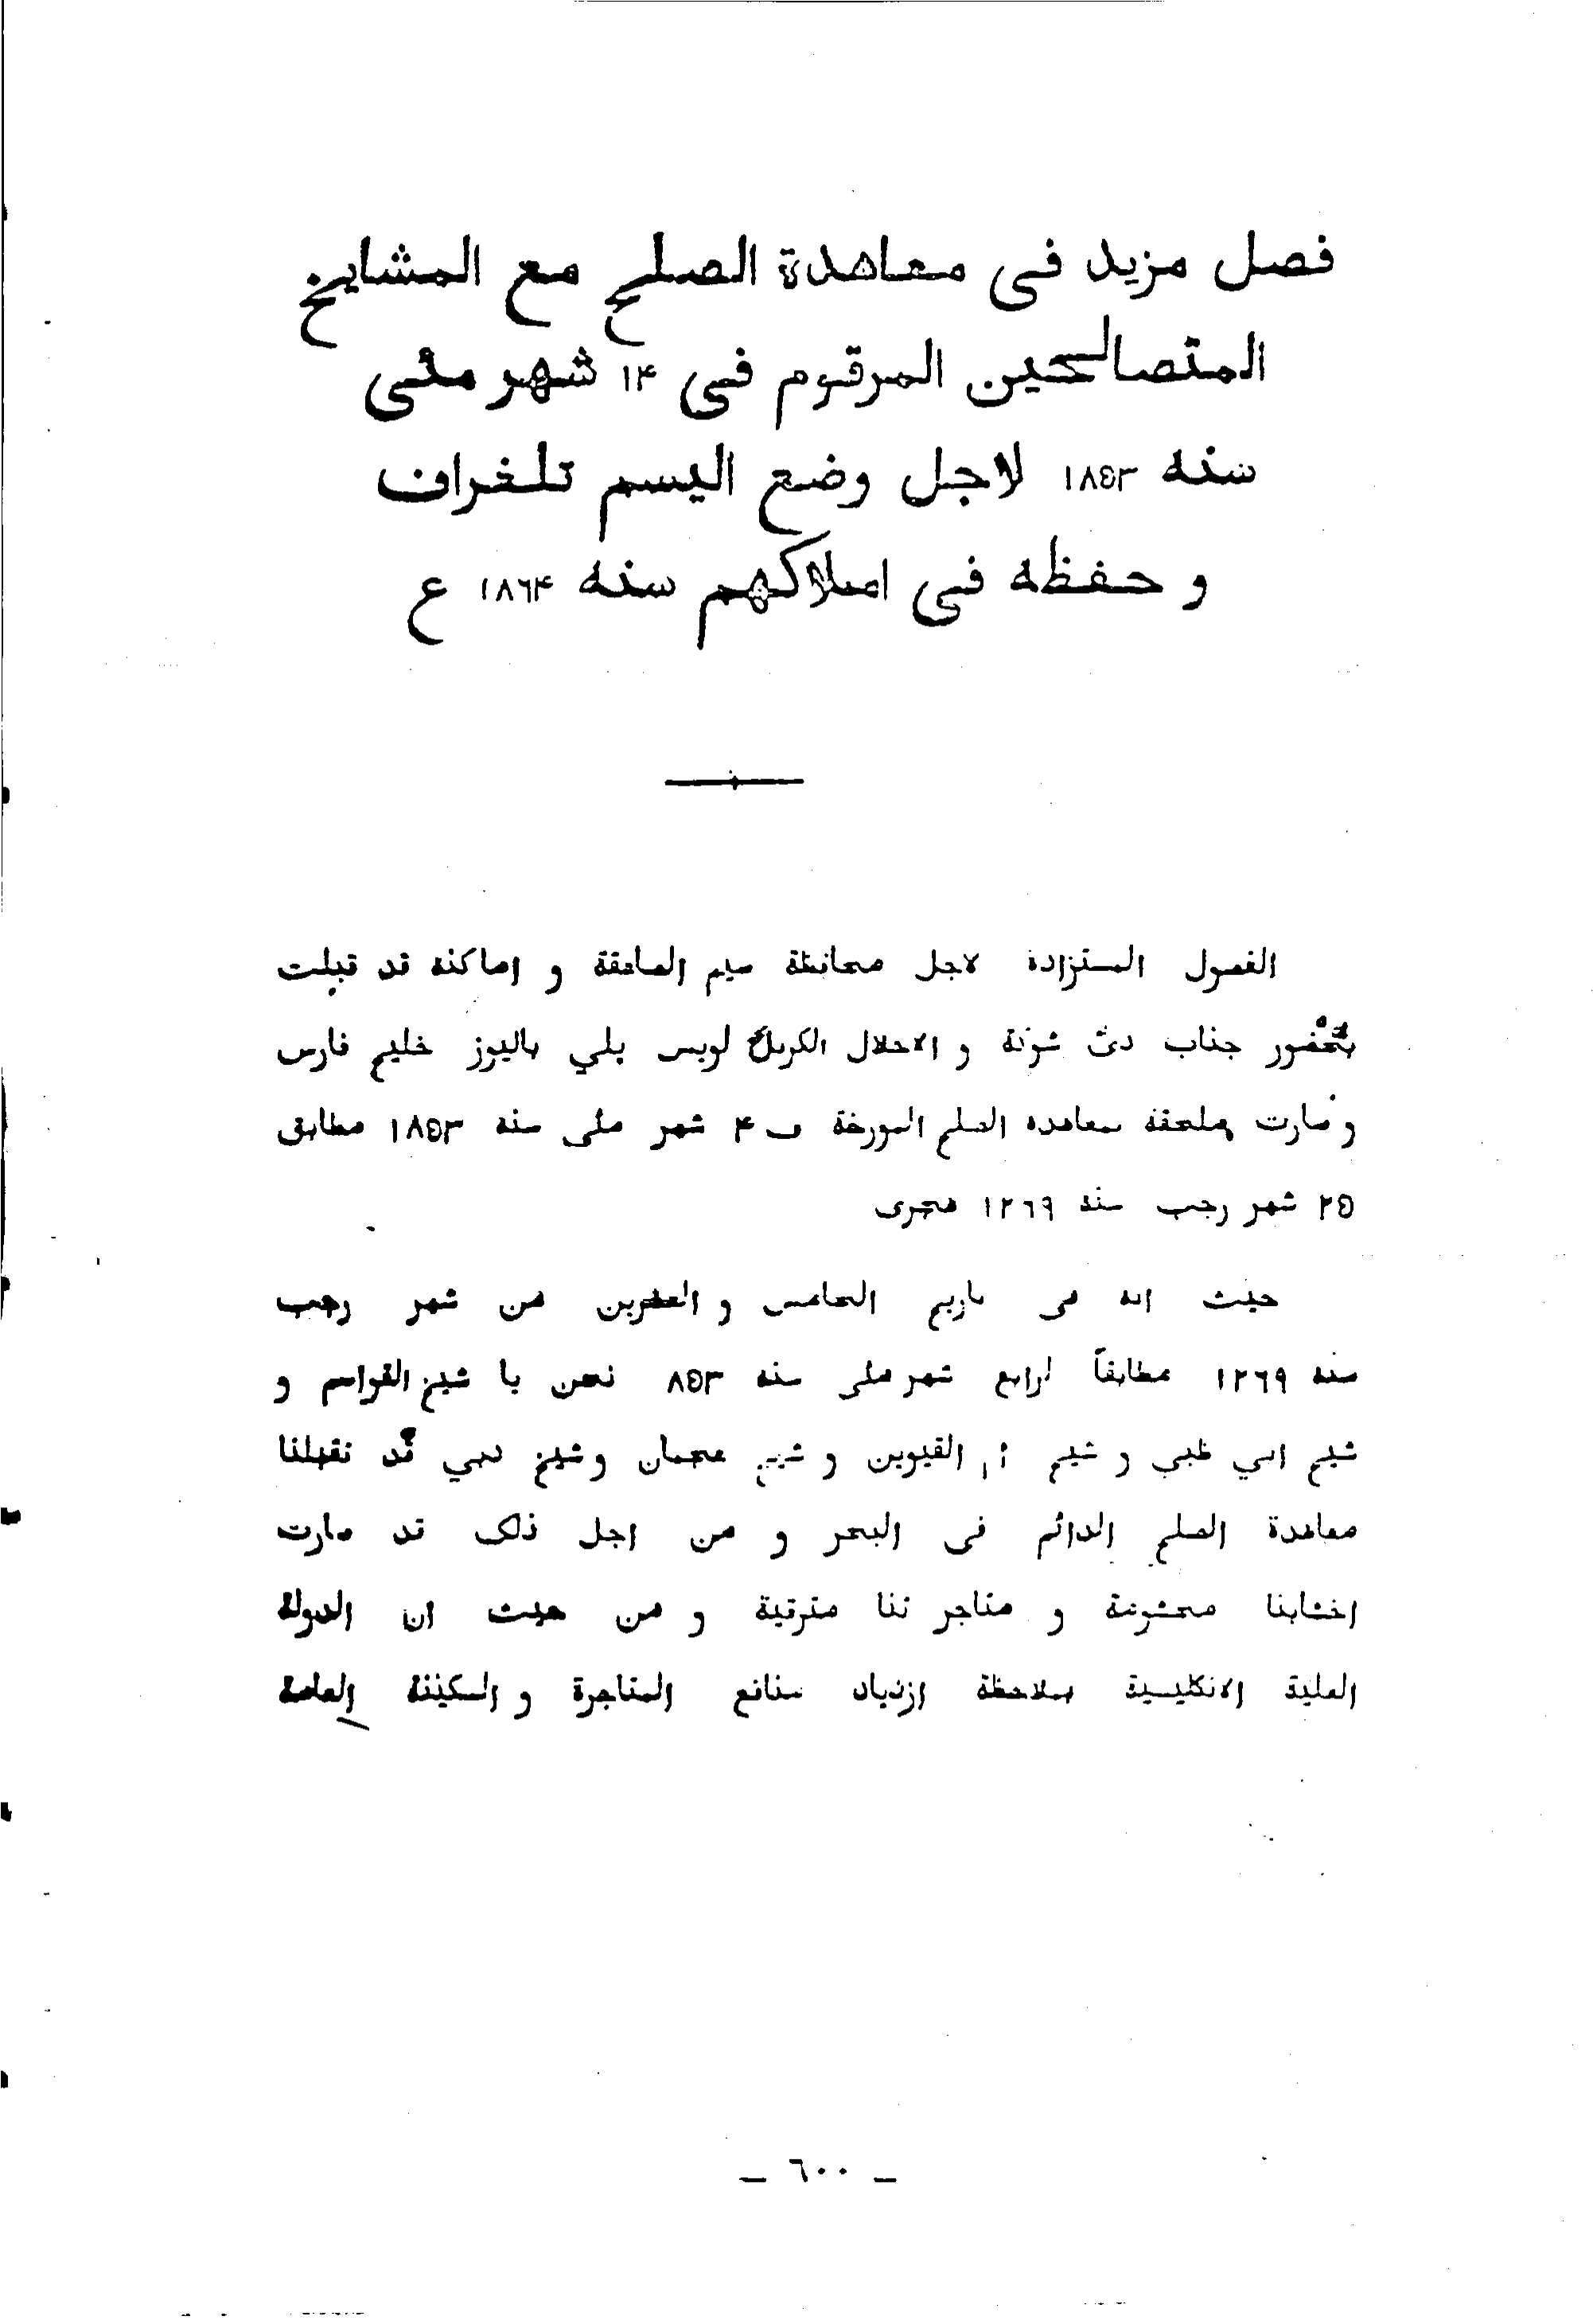 فصل مزيد فى معاهدة الصلح مع المشايخ
المتصالحين المرقوم فى ۱۴ شهر مئى
سنه ۱۸۵۳ لاجل وضع اليسم تلغراف
و حفظه فى املاكهم سنه ۱۸٦۴ ع
الفصول المستزادة لاجل محافظة سيم الصاعقة و اماكنه قد قبلت
بحضور جناب ذى شوٴنة و الاجلال الكرنل لويس پلي باليوز خليج فارس
و صارت ملحقه بمعاهده الصلح المورخة فى ۴ شهر مئى سنه ۱۸۵۳ مطابق
۲۵ شهر رجب سنه ۱۲٦۹ هجرى
حيث انه فى تاريخ الخامس و العشرين من شهر رجب
سنه ۱۲٦۹ مطابقاً لرابع شهر مئى سنه ۸۵۳ نحن يا شيخ القواسم و
شيخ ابي ظبى و شيخ ام القيوين و شيخ عجمان و شيخ دبي قد تقبلنا
معاهدة الصلح الدائم فى البحر و من اجل ذلك قد صارت
اخشابنا محشومة و متاجر تنا مترقية و من حيث ان الدولة
العلية الانكليسية بملاحظة ازدياد منافع المتاجرة و السكينة العامة
– ٦۰۰ –